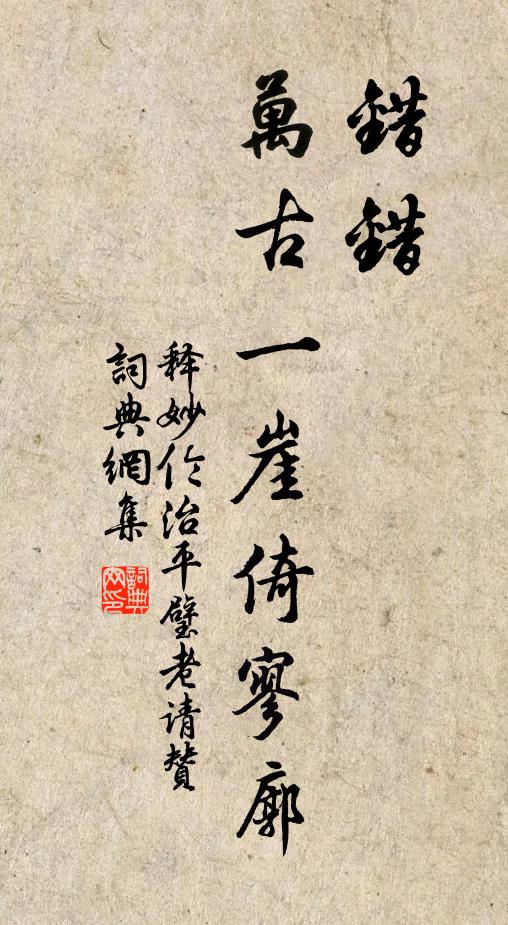 錯錯
萬古一崖倚寥廓
释妙伦治平璧老请贊
詞典網集
詞典网印